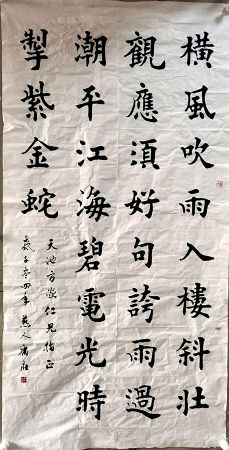 橫風吹雨入樓斜壯
觀應須好句誇雨過
潮平江海碧電光時
掣紫金蛇
天池方家仁兄指正